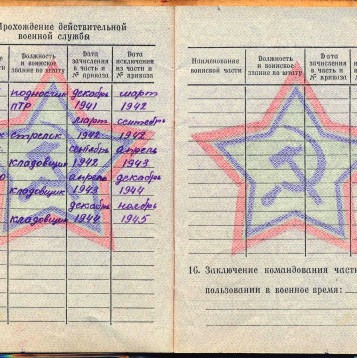 Прохождение действительной
военной службы
Должность
и воинское
звание по штату
Дата
зачисления
в часть и
№ приказа
Дата
исключения
из части и
№ приказа
подносчик декабрь март
ПТР 1941 1942
март сентябрь
стрелок 1942 1942
сентябрь апрель
кладовщик 1942 1943
апрель декабрь
кладовщик 1943 1944
декабрь ноябрь
кладовщик 1944 1945
Наименование
воинской части
Должность
и воинское
звание по штату
Дата
зачисления
в часть и
№ приказа
16. Заключение командования части
пользовании в военное время: